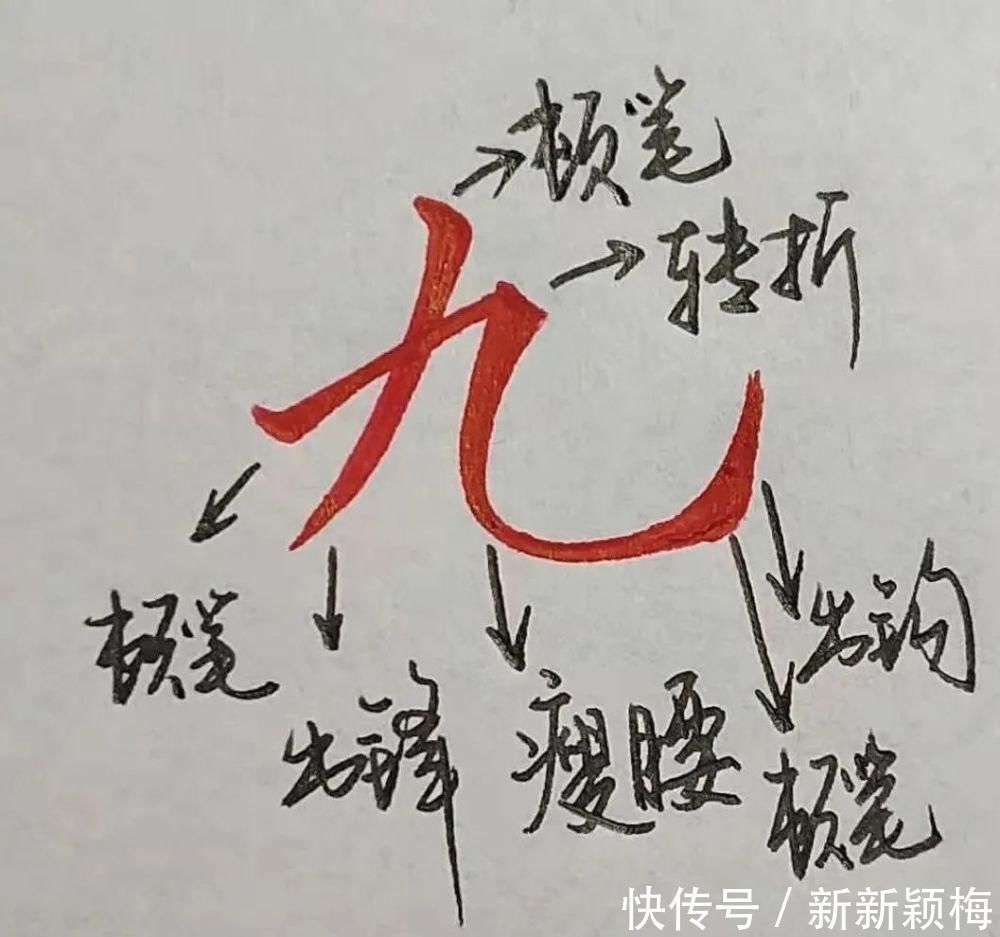 顿笔
转折
九
出钩
顿笔
出锋
瘦腰
顿笔
快传号 / 新新颖梅